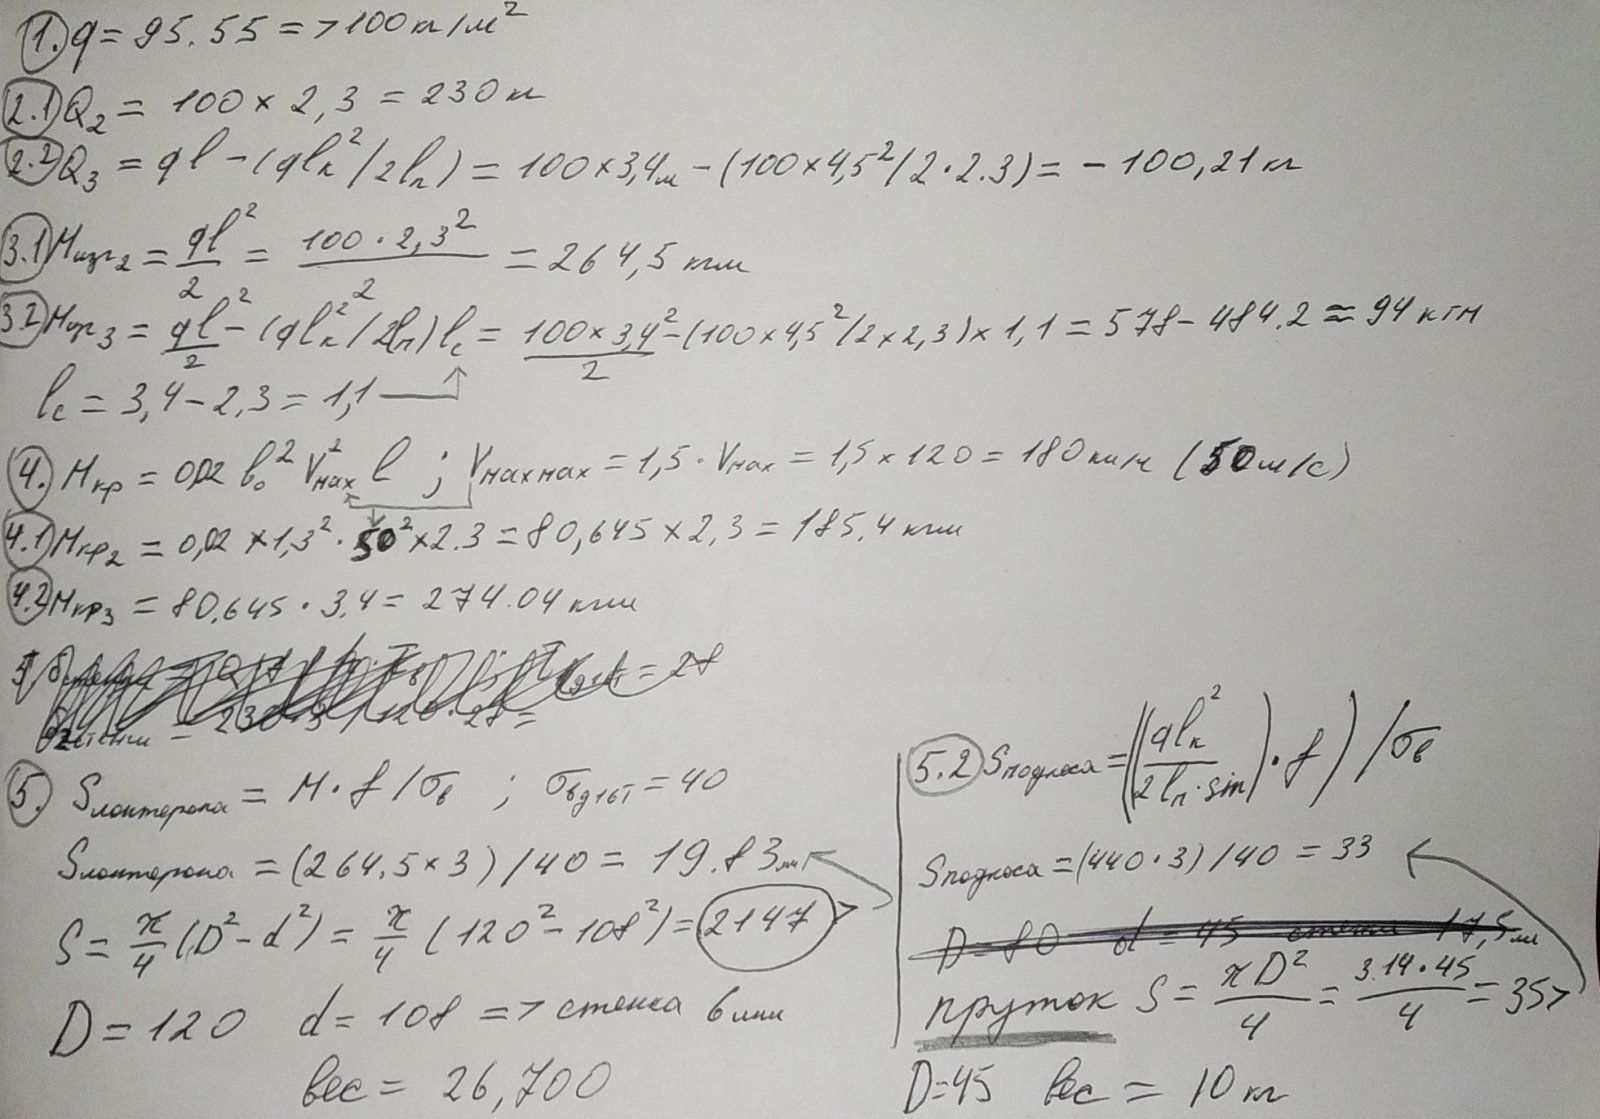 1. q = 95.55 => 100 кг/м²
2.1 Q₂ = 100 × 2,3 = 230 кг
2.2 Q₃ = ql - (qlк²/2lп) = 100×3,4м - (100×4,5²/2·2.3) = - 100,21 кг
3.1 Mизг₂ = ql²/2 = 100·2,3²/2 = 264,5 кгм
3.2 Mизг₃ = ql²/2 - (qlк²/2lп)lс = 100×3,4²/2 - (100×4,5²/2×2,3)×1,1 = 578 - 484.2 ≈ 94 кгм
lс = 3,4 - 2,3 = 1,1
4. Mкр = 0,02 b₀² V²мах l ; Vмахмах = 1,5·Vмах = 1,5×120 = 180 км/ч (50 м/с)
4.1 Mкр₂ = 0,02 × 1,3² · 50² × 2.3 = 80,645 × 2,3 = 185,4 кгм
4.2 Mкр₃ = 80,645 · 3,4 = 274.04 кгм
= 28
5. Sлонжерона = M·f/σв ; σвд16т = 40
Sлонжерона = (264,5×3)/40 = 19.83мм
S = π/4 (D² - d²) = π/4 (120² - 108²) = 2147
D = 120 d = 108 => стенка 6 мм
вес = 26,700
5.2 Sподкоса = ((qlк²/2lп·sin)·f)/σв
Sподкоса = (440·3)/40 = 33
D = 80 d = 45 стенки 17,5 мм
пруток S = πD²/4 = 3.14·45/4 = 35>
D=45 вес = 10 кг